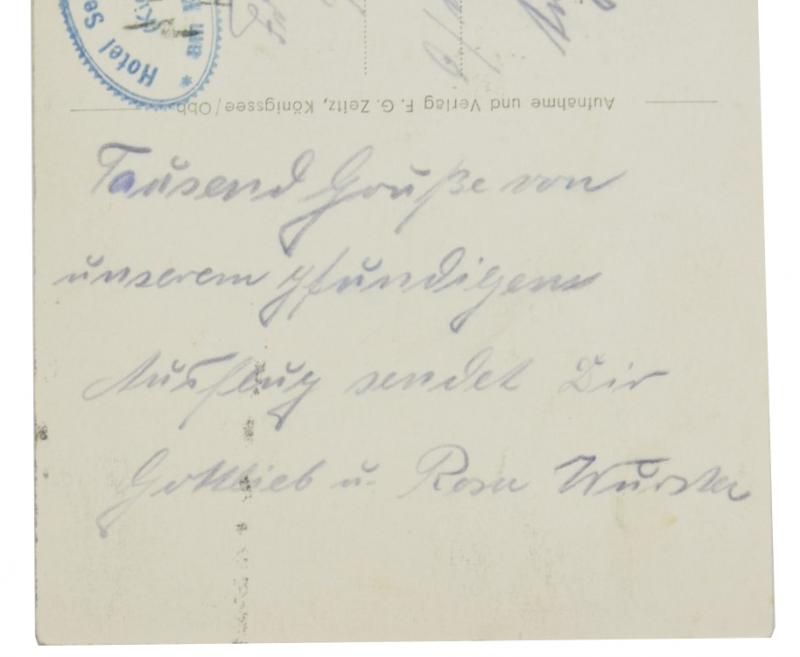 Hotel Se
Aufnahme und Verlag F. G. Zeitz, Königssee/Obb.
Tausend Grüße von
unserem pfundigen
Ausflug sendet Dir
Gottlieb u. Rosa Wurster